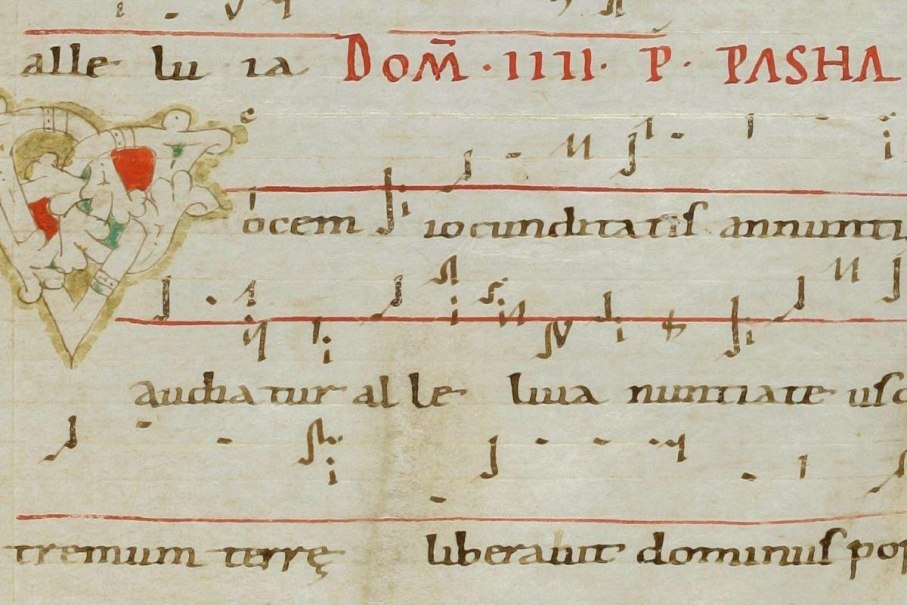 alle lu ia DOM̄ · IIII · P̄ · PASHA
Vocem iocunditatis annunti
audiatur alle luia nuntiate usq
tremum terrę liberauit dominus pop